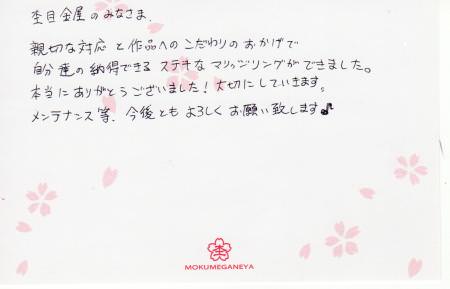 杢目金屋のみなさま.
親切な対応と作品へのこだわりのおかげで
自分達の納得できるステキなマリッジリングができました。
本当にありがとうございました！大切にしていきます。
メンテナンス等、今後ともよろしくお願い致します♪
MOKUMEGANEYA